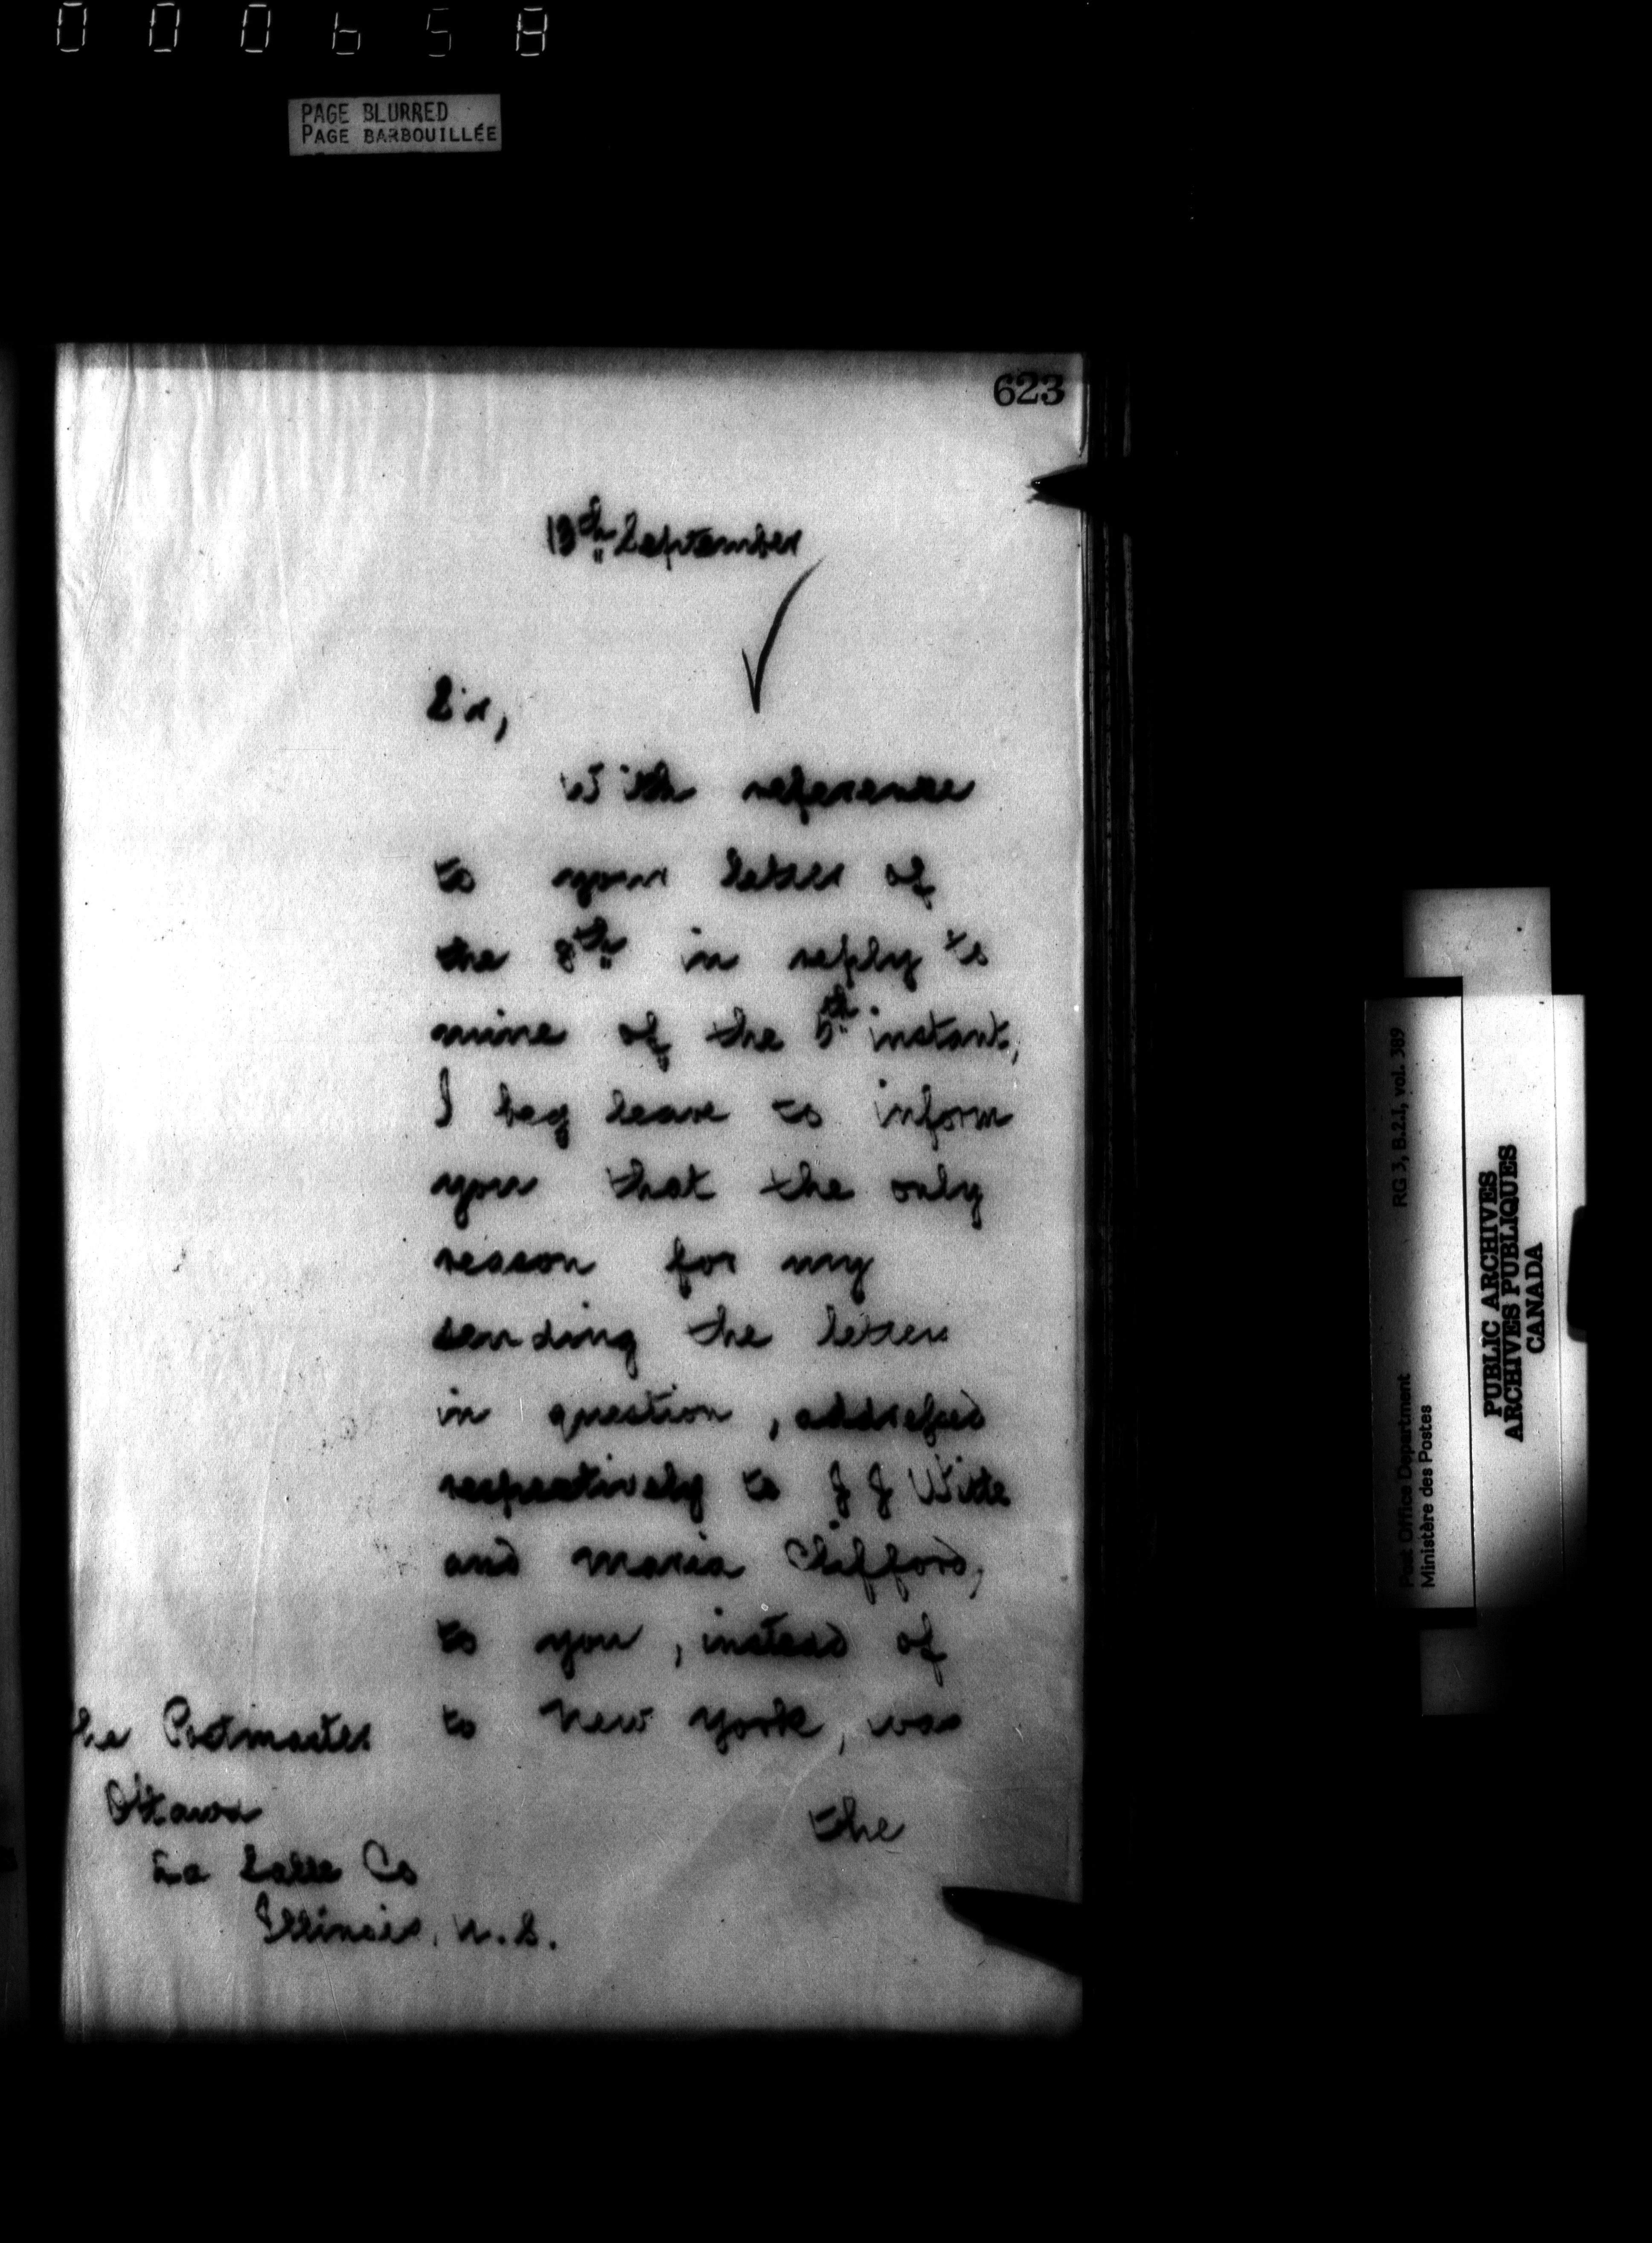 000658
PAGE BLURRED
PAGE BARBOUILLÉE
623
13th September
Sir,
With reference
to your letter of
the 8th in reply to
mine of the 5th instant,
I beg leave to inform
you that the only
reason for my
sending the letters
in question, addressed
respectively to J J Witte
and Maria Clifford,
to you, instead of
to New York, was
the
The Postmaster
Ottawa
La Salle Co
Illinois. U.S.
RG 3, B.2.1, vol. 389
Post Office Department
Ministère des Postes
PUBLIC ARCHIVES
ARCHIVES PUBLIQUES
CANADA